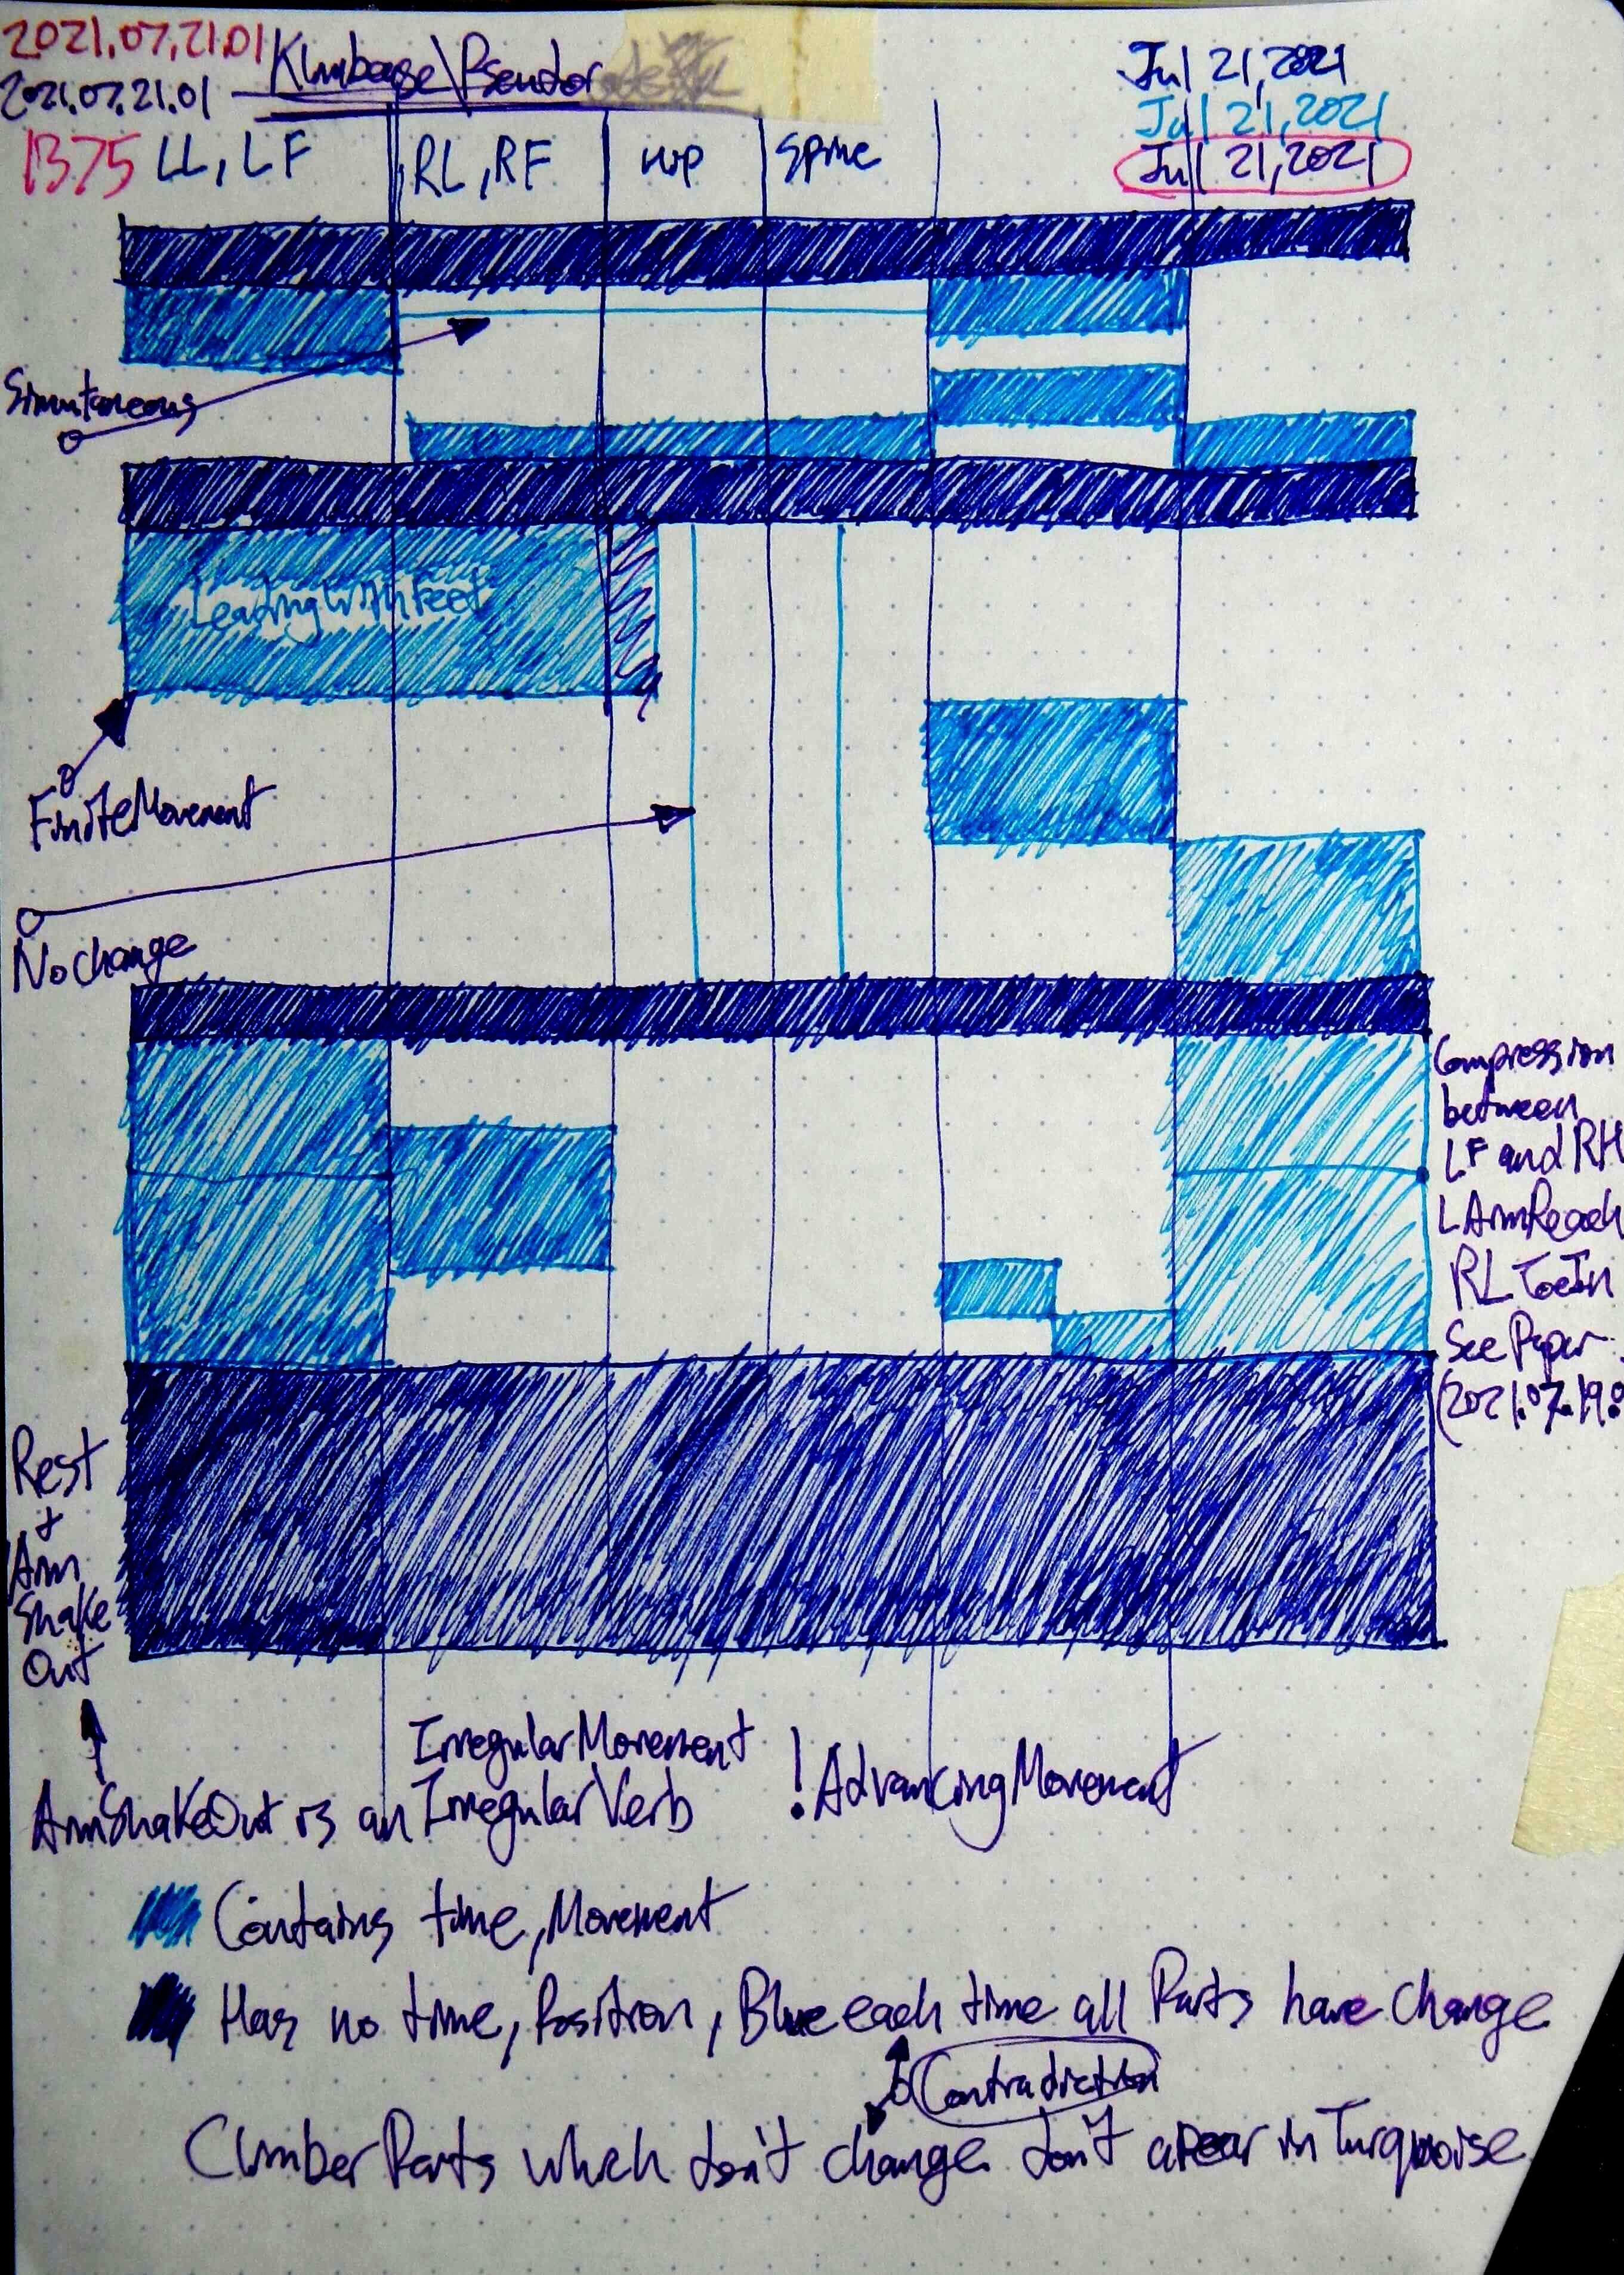 2021.07.21.01
2021.07.21.01
Jul 21, 2021
Jul 21, 2021
Jul 21, 2021
B75 LL, LF
RL, RF
Hip
Spine
Simultaneous
LeadingWithFeet
FiniteMovement
No change
Compression
between
LF and RH
LArmReach
RL ToeIn
See Paper
(2021.07.19.
Rest
+
Arm
Shake
Out
IrregularMovement
! AdvancingMovement
ArmShakeOut is an IrregularVerb
Contains time, Movement
Has no time, Position, Blue each time all Parts have change
Contradiction
ClimberParts which don't change don't apear in Turquoise